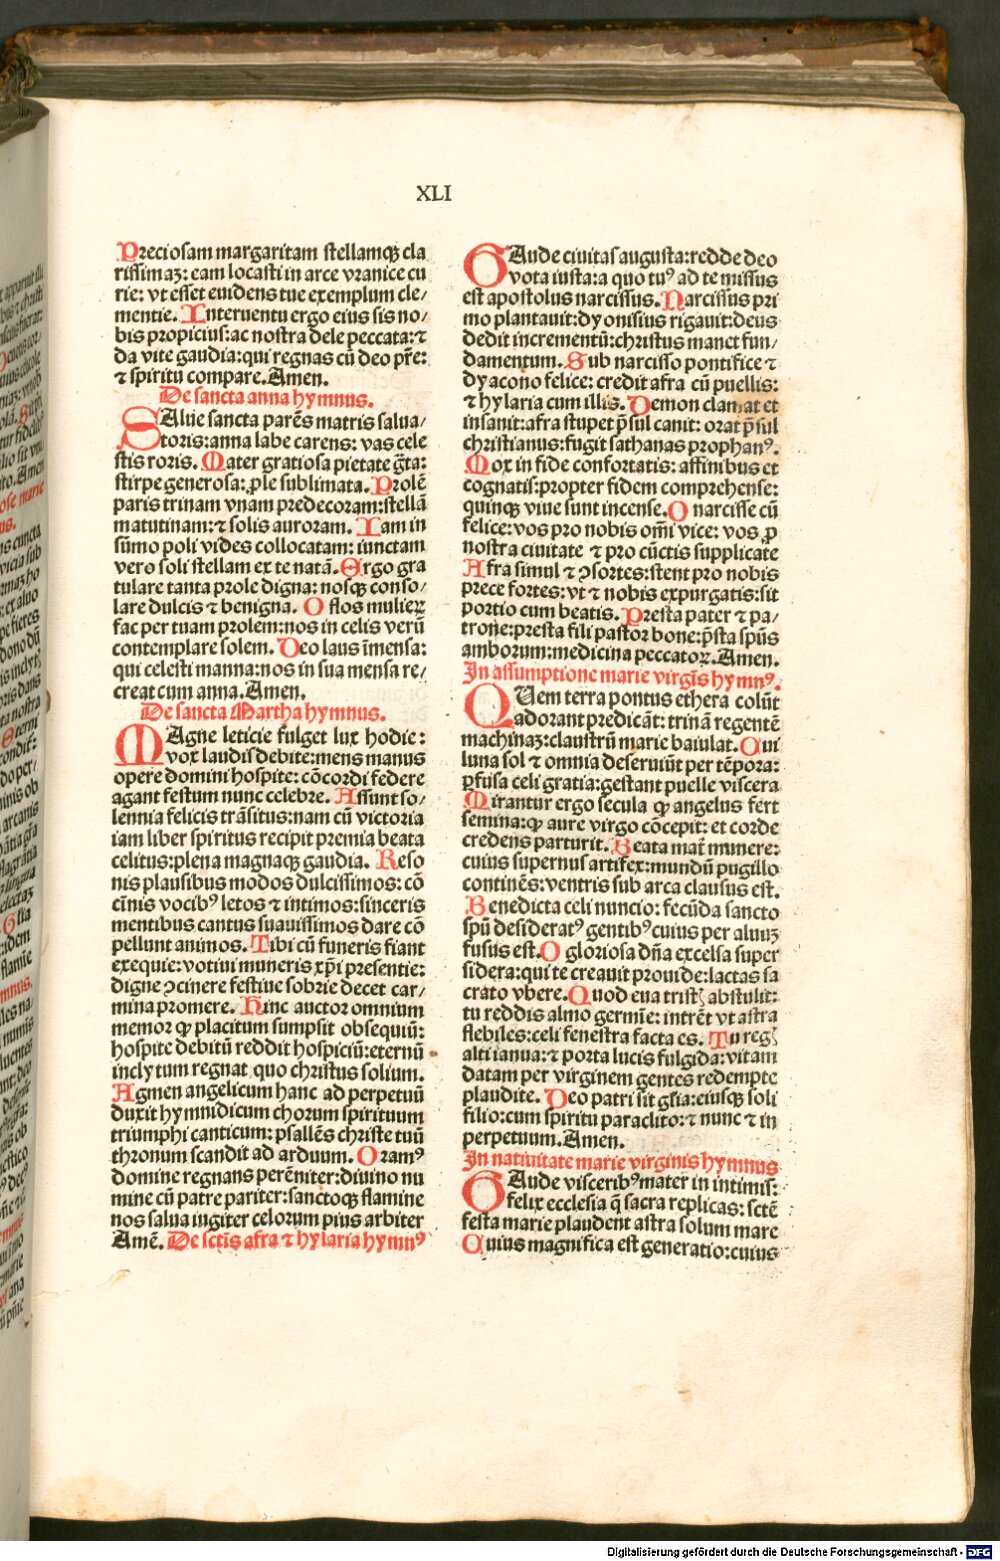 XLI
Preciosam margaritam stellamqꝫ cla
rissimaꝫ: eam locasti in arce vranice cu
rie: vt esset euidens tue exemplum cle/
mentie. Interuentu ergo eius sis no/
bis propicius: ac nostra dele peccata: ⁊
da vite gaudia: qui regnas cū deo pr̄e:
⁊ spiritu compare. Amen.
De sancta anna hymnus.
SAlue sancta parēs matris salua/
toris: anna labe carens: vas cele
stis roris. Mater gratiosa pietate gr̄ta:
stirpe generosa: ꝓle sublimata. Prolē
paris trinam vnam predecoram: stellā
matutinam: ⁊ solis auroram. Iam in
sūmo poli vides collocatam: iunctam
vero soli stellam ex te natā. Ergo gra
tulare tanta prole digna: nosqꝫ conso/
lare dulcis ⁊ benigna. O flos mulieꝝ
fac per tuam prolem: nos in celis verū
contemplare solem. Deo laus īmensa:
qui celesti manna: nos in sua mensa re/
creat cum anna. Amen.
De sancta Martha hymnus.
MAgne leticie fulget lux hodie:
vox laudis debite: mens manus
opere domini hospite: cōcordi federe
agant festum nunc celebre. Assunt so/
lennia felicis trāsitus: nam cū victoria
iam liber spiritus recipit premia beata
celitus: plena magnaqꝫ gaudia. Reso
nis plausibus modos dulcissimos: cō
cīnis vocibꝰ letos ⁊ intimos: sinceris
mentibus cantus suauissimos dare cō
pellunt animos. Tibi cū funeris fiant
exequie: votiui muneris xp̄i presentie:
digne ꝯcinere festiue sobrie decet car/
mina promere. Hinc auctor omnium
memor ꝙ placitum sumpsit obsequiū:
hospite debitū reddit hospiciū: eternū
inclytum regnat quo christus solium.
Agmen angelicum hanc ad perpetuū
duxit hymnidicum chorum spirituum
triumphi canticum: psallēs christe tuū
thronum scandit ad arduum. Oramꝰ
domine regnans perēniter: diuino nu
mine cū patre pariter: sanctoqꝫ flamine
nos salua iugiter celorum pius arbiter
Amē. De sctīs afra ⁊ hylaria hymnꝰ
GAude ciuitas augusta: redde deo
vota iusta: a quo tuꝰ ad te missus
est apostolus narcissus. Narcissus pri
mo plantauit: dyonisius rigauit: deus
dedit incrementū: christus manet fun/
damentum. Sub narcisso pontifice ⁊
dyacono felice: credit afra cū puellis:
⁊ hylaria cum illis. Demon clamat et
insanit: afra stupet p̄sul canit: orat p̄sul
christianus: fugit sathanas prophanꝰ.
Mox in fide confortatis: affinibus et
cognatis: propter fidem comprehense:
quinqꝫ viue sunt incense. O narcisse cū
felice: vos pro nobis om̄i vice: vos ꝓ
nostra ciuitate ⁊ pro cūctis supplicate
Afra simul ⁊ ꝯsortes: stent pro nobis
prece fortes: vt ⁊ nobis expurgatis: sit
portio cum beatis. Presta pater ⁊ pa/
trone: presta fili pastor bone: p̄sta spūs
amborum: medicina peccatoꝝ. Amen.
In assumptione marie virgīs hymnꝰ.
QUem terra pontus ethera colūt
adorant predicāt: trinā regentē
machinaꝫ: claustrū marie baiulat. Qui
luna sol ⁊ omnia deseruiūt per tēpora:
ꝑfusa celi gratia: gestant puelle viscera
Mirantur ergo secula ꝙ angelus fert
semina: ꝙ aure virgo cōcepit: et corde
credens parturit. Beata mat̄ munere:
cuius supernus artifex: mundū pugillo
continēs: ventris sub arca clausus est.
Benedicta celi nuncio: fecūda sancto
spū desideratꝰ gentibꝰ cuius per aluuꝫ
fusus est. O gloriosa dn̄a excelsa super
sidera: qui te creauit prouide: lactas sa
crato vbere. Quod eua tristꝭ abstulit:
tu reddis almo germīe: intrēt vt astra
flebiles: celi fenestra facta es. Tu regꝭ
alti ianua: ⁊ porta lucis fulgida: vitam
datam per virginem gentes redempte
plaudite. Deo patri sit gl̄ia: eiusqꝫ soli
filio: cum spiritu paraclito: ⁊ nunc ⁊ in
perpetuum. Amen.
In natiuitate marie virginis hymnus
GAude visceribꝰ mater in intimis:
felix ecclesia q̄ sacra replicas: sctē
festa marie plaudent astra solum mare
Cuius magnifica est generatio: cuius
Digitalisierung gefördert durch die Deutsche Forschungsgemeinschaft - DFG